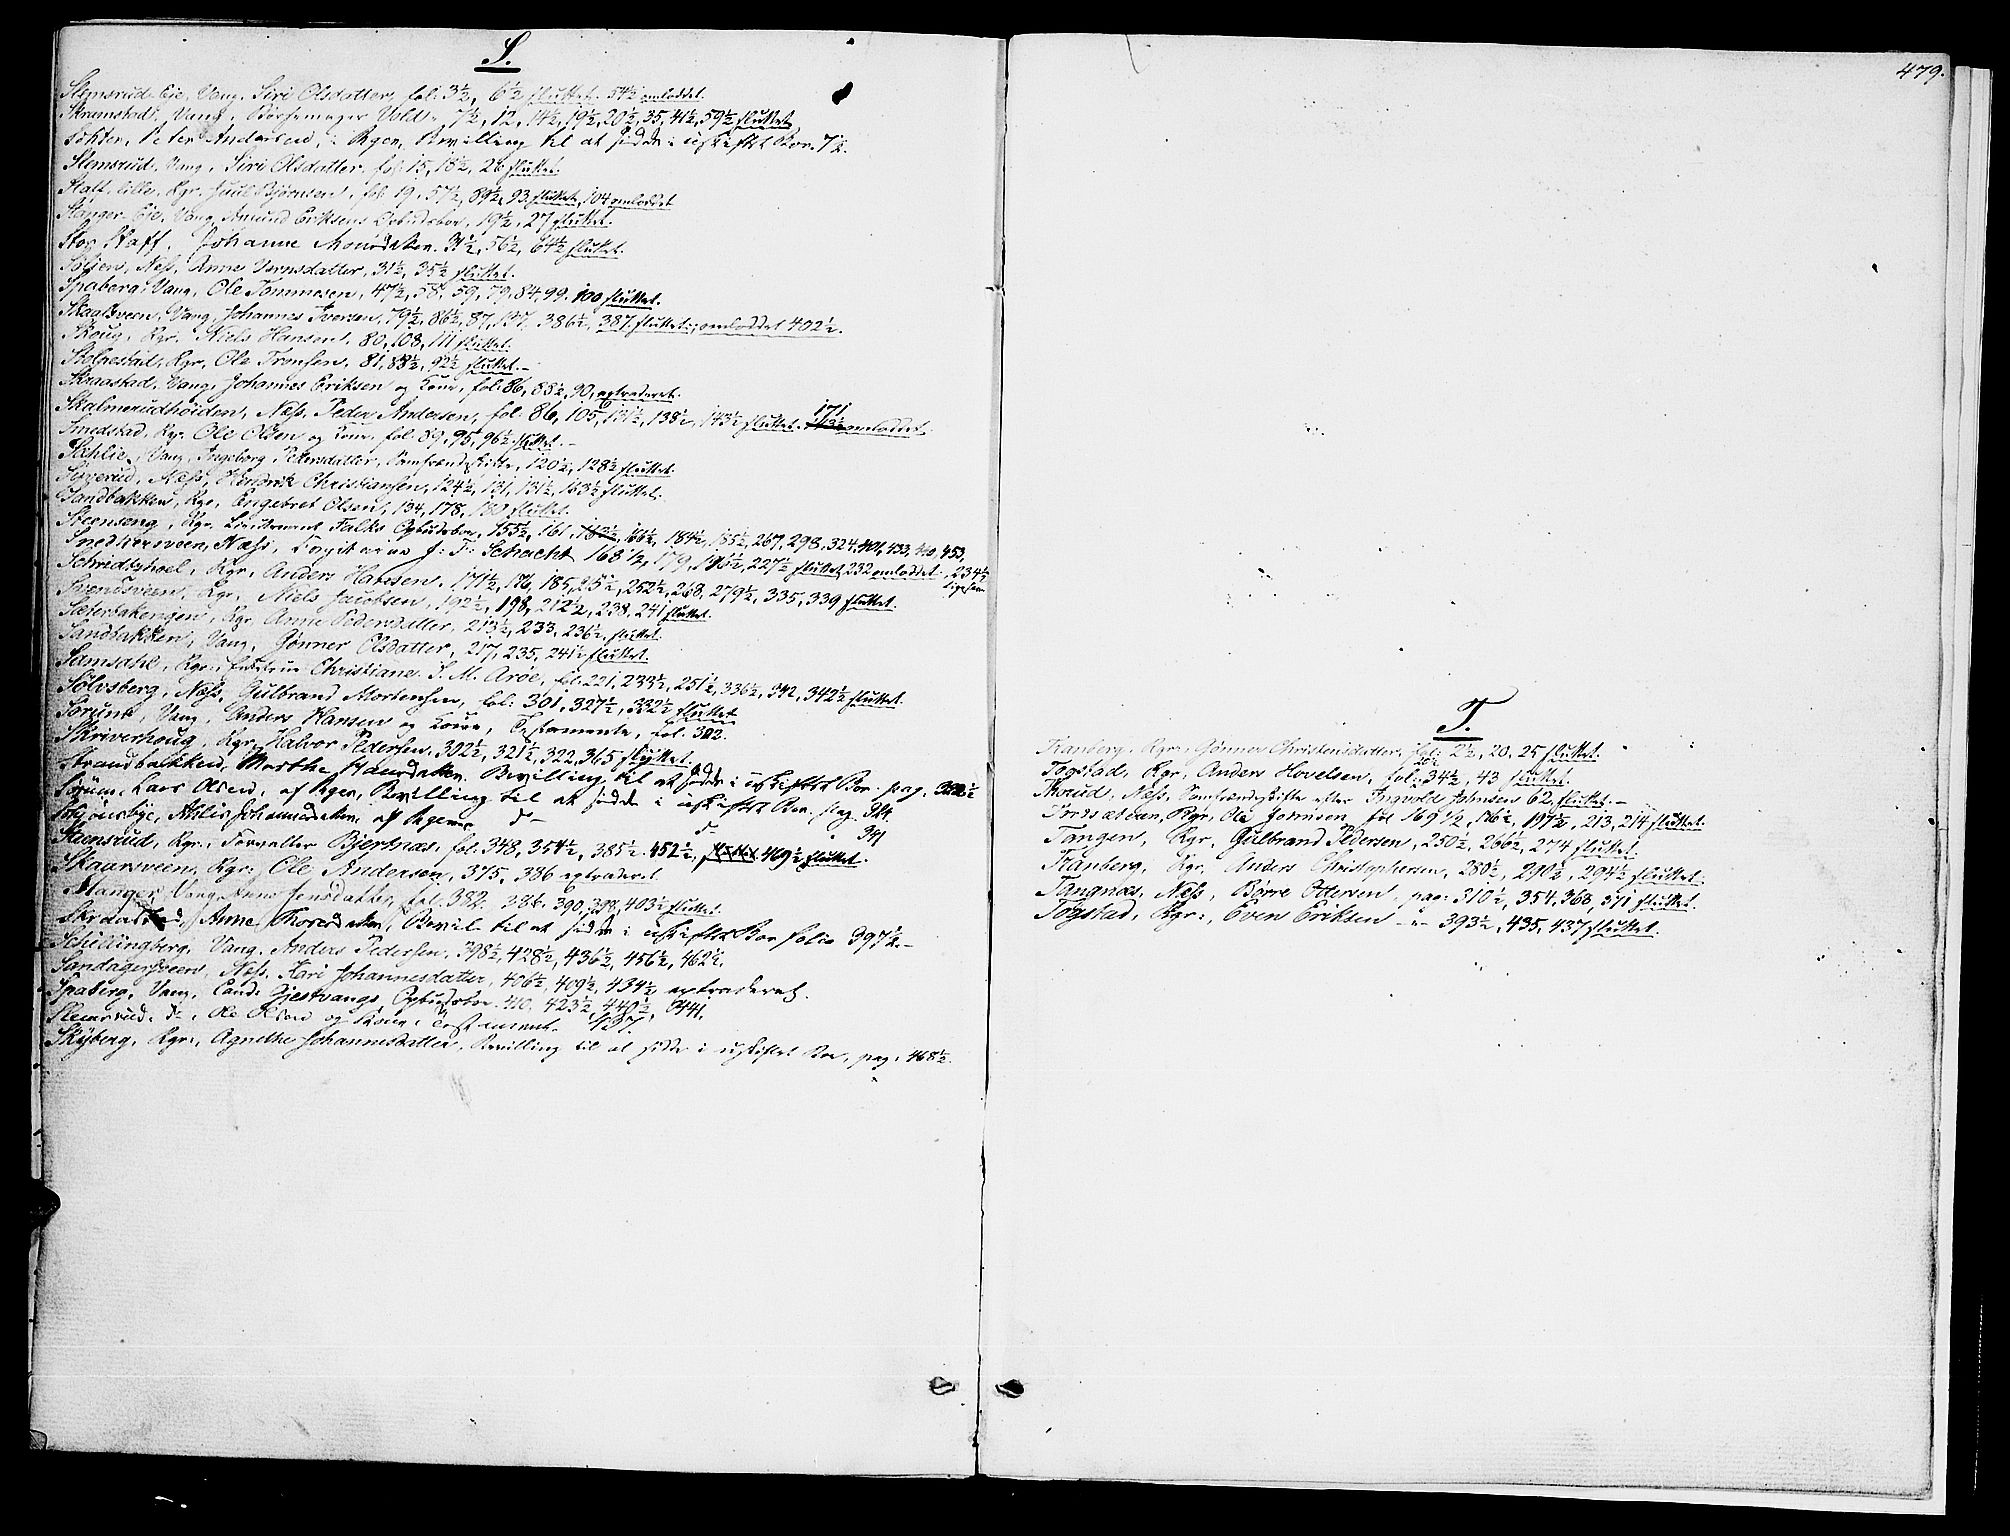 S.
Slemsrud Eie, Vang. Siri Olsdatter, fol: 3½, 6½ sluttet. 54½ omloddet.
Skramstad, Vang, Børsemager Vold, 7½, 12, 14½, 19½, 20½, 35, 41½, 59½ sluttet
Peter Andersen, i Rgr, Bevilling til at sidde i uskiftet Boe. 7½.
Slemsrud, Vang, Siri Olsdatter, fol: 15, 18½, 26 sluttet.
Staff, lille, Rgr. Juul Bjørnsen, fol: 19, 57½, 89½, 93 sluttet, 104 omloddet
Stanger Eie, Vang, Amund Eriksens Opbudsboe, 19½, 27 sluttet.
Stor Staff, Johanne Monsdatter. 31½, 56½, 64½ sluttet.
Næss, Anne Larsdatter, 31½, 35½ sluttet.
Spaberg, Vang, Ole Tommesen, 47½, 58, 59, 79, 84, 99. 100 sluttet.
Skaalsveen, Vang, Johannes Iversen, 79½, 86½, 87, 137, 386½, 387 sluttet, omloddet 402½.
Skoug, Rgr. Niels Hansen, 80, 108, 111 sluttet.
Stolpestad, Rgr. Ole Tronsen, 81, 88½, 92½ sluttet.
Skraastad, Vang, Johannes Eriksen og Kone, fol: 86, 88½, 90, extraderet.
Skalmerudhøiden, Næss, Peder Andersen, fol: 86, 105, 131½, 138½, 143½ sluttet. 171 omloddet
Smedstad, Rgr. Ole Olsen og Kone, fol. 89, 95, 96½ sluttet.
Sæhlie, Vang, Ingeborg Pedersdatter, Samfrændeskifte, 120½, 128½ sluttet.
Næss, Hendrik Christiansen, 124½, 131, 131½, 163½ sluttet.
Sandbakken, Rgr. Engebret Olsen, 134, 178, 180 sluttet.
Steenseng, Rgr. Lieutenant Falks Opbudsboe, 155½, 161, 166½, 184½, 185½, 267, 298, 324, 401, 433, 453.
Snedkersveen, Næss, J. F. Schacht 168½, 179, 227½ sluttet, 232 omloddet, 234½ ligesaa
Schmidtshoel, Rgr. Anders Hansen, 171½, 176, 185, 215½, 252½, 268, 279½, 335, 339 sluttet.
Svendsveen, Rgr. Niels Jacobsen, 192½, 198, 212½, 238, 241 sluttet.
Sæterbakengen, Rgr. Anne Pedersdatter, 213½, 233, 236½ sluttet.
Sandbakken, Vang, Gønner Olsdatter, 217, 235, 241½ sluttet.
Samsdahl, Rgr. Christiane S. M. Arøe, fol: 221, 233½, 251½, 336½, 342, 342½ sluttet.
Sølvsberg, Næss, Gulbrand Mortensen, fol: 301, 327½, 332½ sluttet
Sørum, Vang, Anders Hansen og Kone, Testamente, fol. 302.
Skriverhoug, Rgr. Halvor Pedersen, 302½, 321½, 322, 365 sluttet.
Strandbakken, Marthe Hansdatter. Bevilling til at sidde i uskiftet Boe. pag. 322½
Sørum, Lars Olsen, af Rgr, Bevilling til at sidde i uskiftet Boe. pag. 324.
Ahlis Johannesdatter, af Rgr. do do 341
Steensrud, Rgr., Forvalter Bjerknæs, fol: 348, 354½, 385½, 452½, 469½ sluttet.
Skaarsveen, Rgr. Ole Andersen, 375, 386 extraderet
Stanger, Vang, Jensdatter, fol: 382, 386, 390, 398, 403½ sluttet.
Anne Thoresdatter, Bevil. til at sidde i uskiftet Boe folio 397½.
Schillingberg, Vang. Anders Pedersen, 398½, 428½, 436½, 456½, 462½.
Sandagersveen, Næss, Kari Johannesdatter, 406½, 409½, 434½ extraderet.
Spaberg, Vang, Cand: Gjestvangs Opbudsboe. 410, 423½, 440½, 441.
Slemsrud, do, Ole Olsen og Kone, Testament. 437.
Skyberg, Rgr., Agnethe Johannesdatter, Bevilling til at sidde i uskiftet Boe, pag: 468½.
479.
T.
Tranberg, Rgr., Gønner Christensdatter, fol: 2½, 20, 25 sluttet.
Togstad, Rgr, Anders Hovelsen, fol: 34½, 43 sluttet.
Næss, Samfrændeskifte efter Ingvold Johnsen 62, sluttet.
Rgr. Ole Jonsen fol 169½, 176½, 197½, 213, 214 sluttet.
Tangen, Rgr. Gulbrand Pedersen, 250½, 266½, 274 sluttet.
Tranberg, Rgr. Anders Christophersen, 280½, 290½, 294½ sluttet.
Tangnæs, Næss, Børre Ottersen, pag: 310½, 354, 368, 371 sluttet.
Togstad, Rgr., Even Eriksen - " - 393½, 435, 437 sluttet.